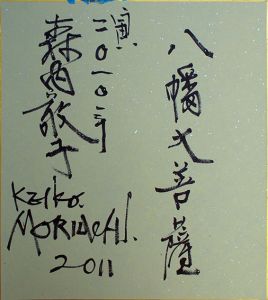 八幡大菩薩
寅二〇一〇年
森内敬子
Keiko.
MORIUCHI.
2011